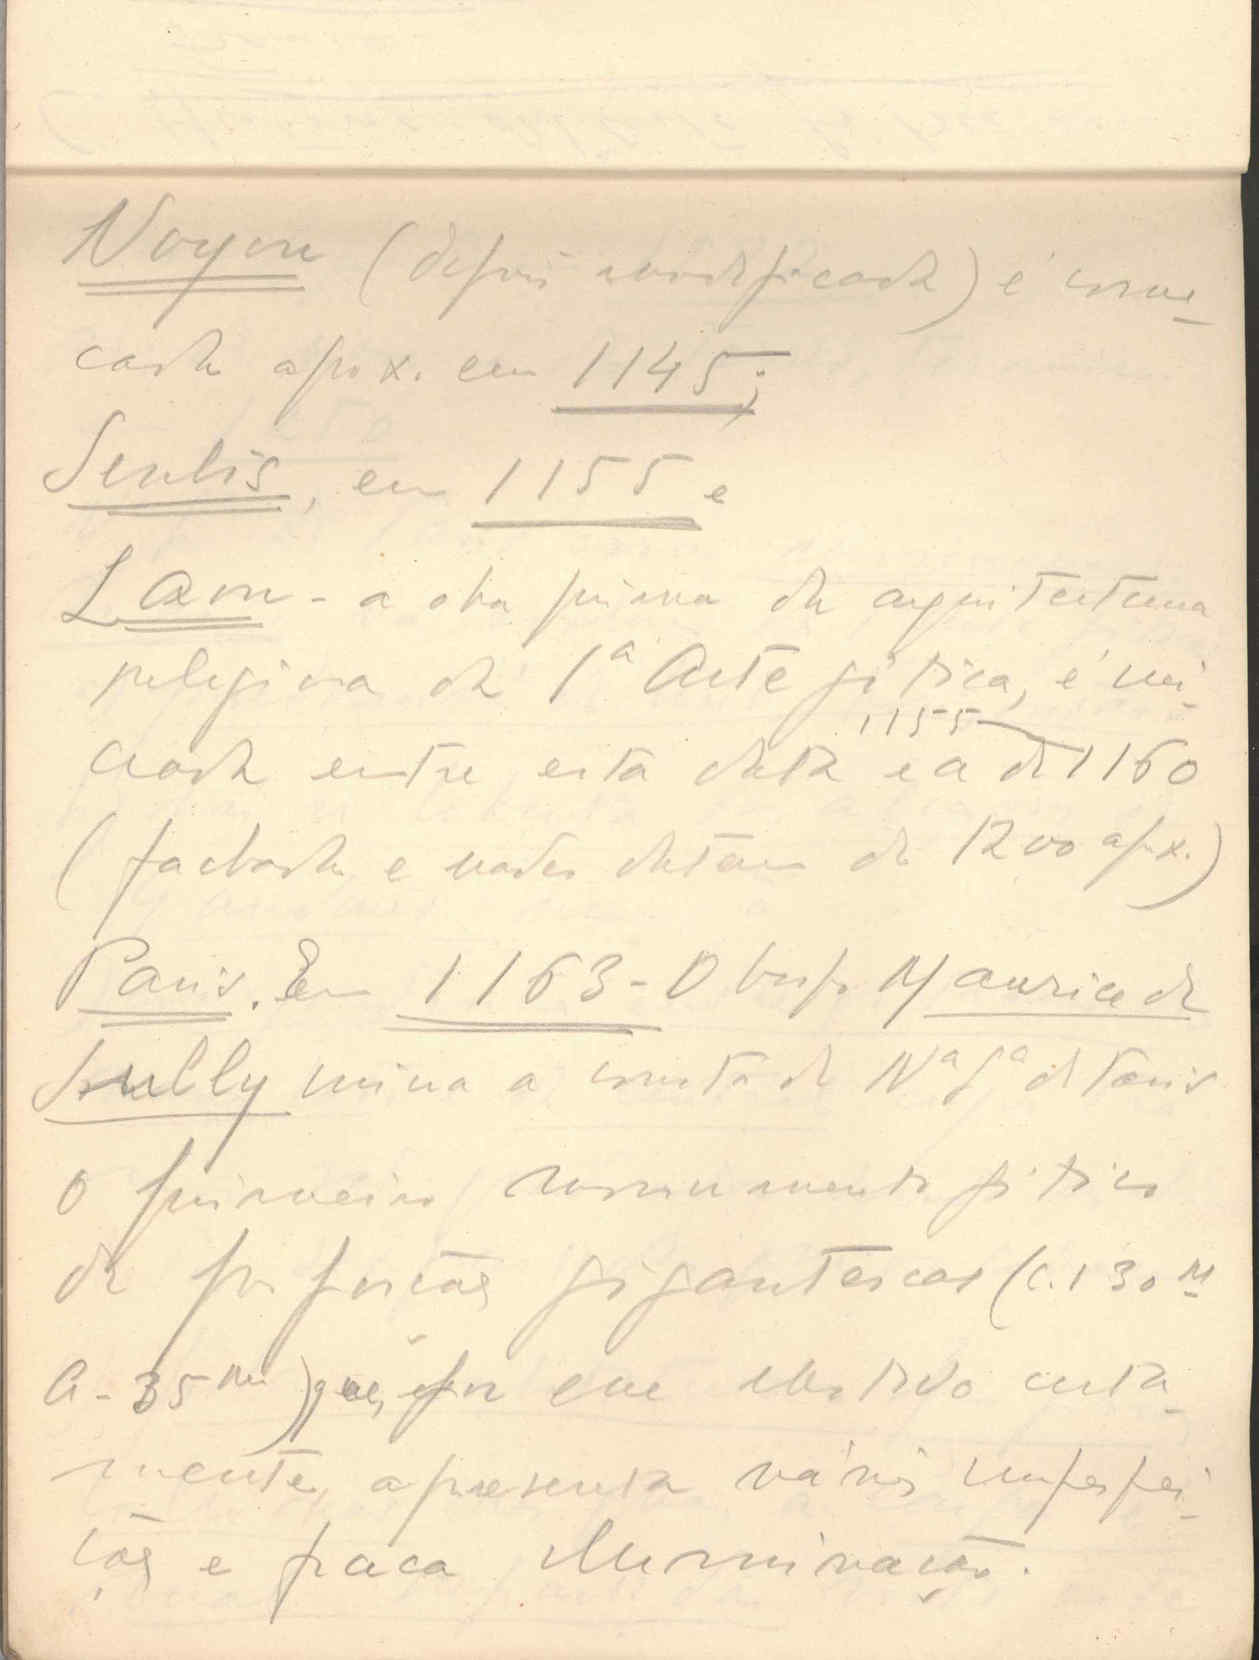 Noyon (depois modificada) é come-
cada aprox. em 1145;
Senlis, em 1155 e
Laon - a obra prima da arquitectura
religiosa da 1ª Arte gótica, é ini-
ciada entre esta data 1155 e a de 1160
(fachada e naves datam de 1200 apx.)
Paris. Em 1163 - O bispo Maurice de
Sully inicia a const. da Nª Sª de Paris
o primeiro monumento gótico
de proporções gigantescas (C. 130 M
A - 35 m) que, por esse motivo certa-
mente, apresenta várias imperfei-
ções e fraca iluminação.